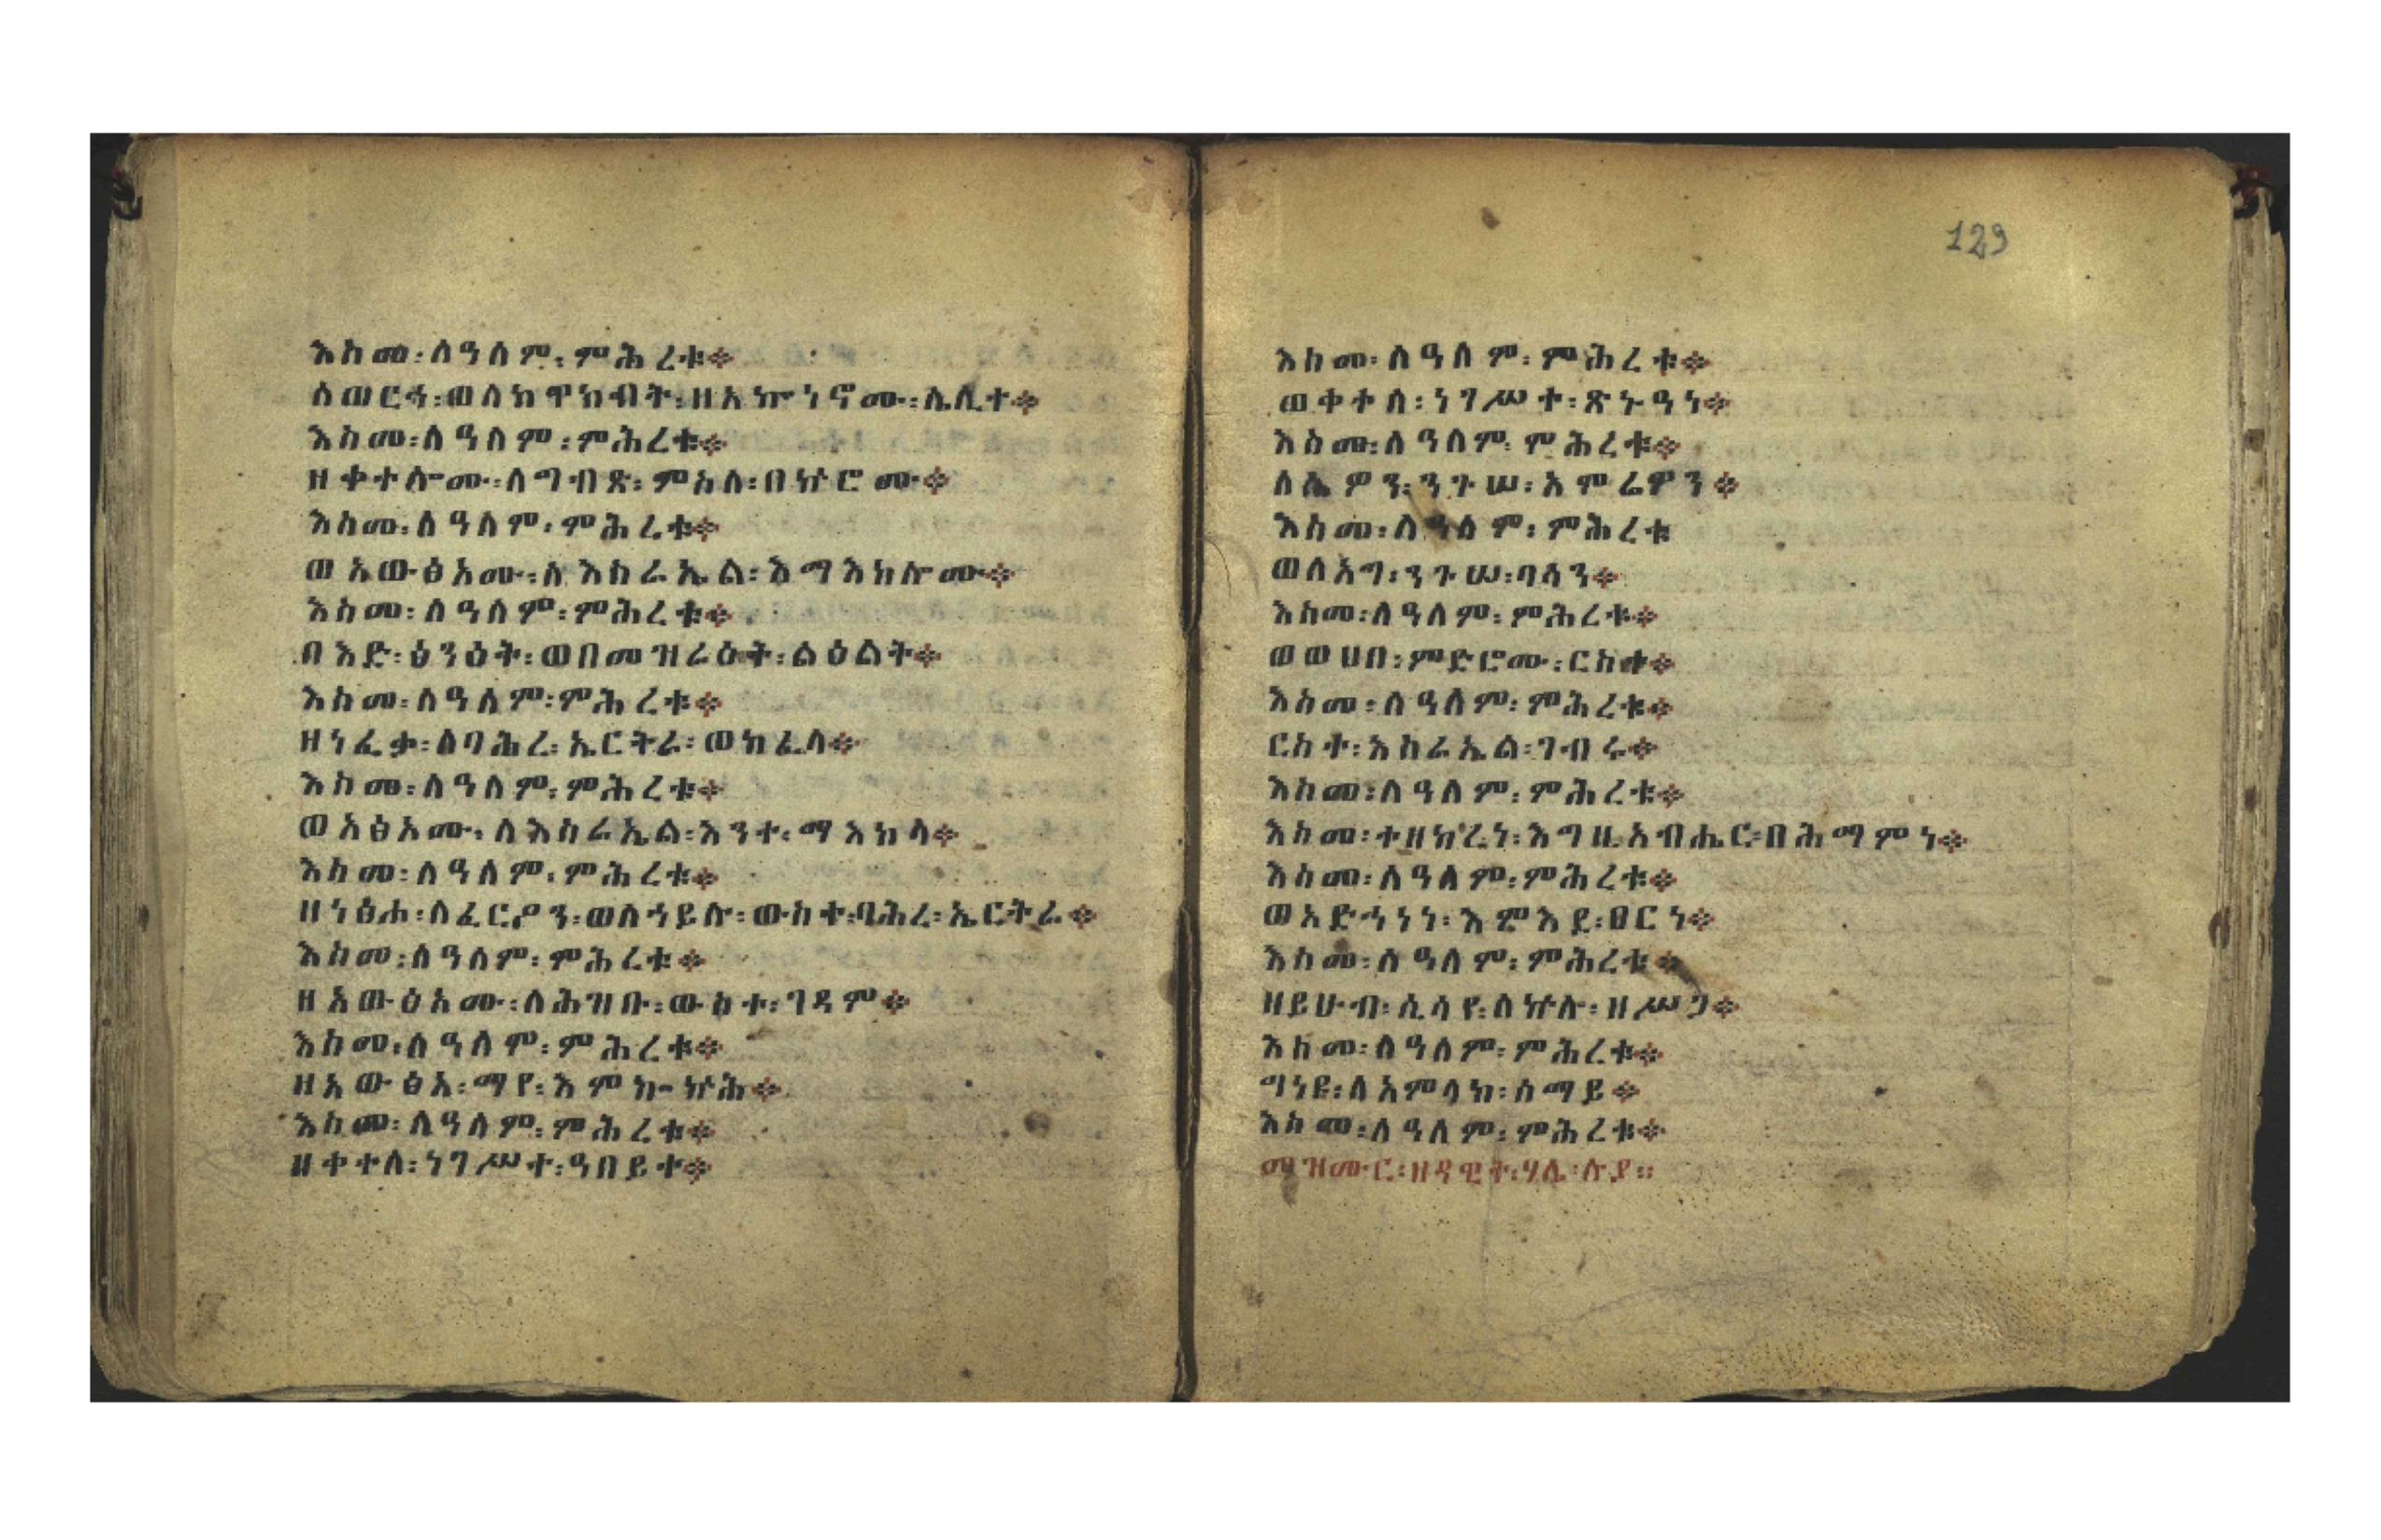 እስመ፡ለዓለም፡ምሕረቱ።
ለወርኅ፡ወለከዋክብት፡ዘአኰነኖሙ፡ሌሊተ።
እስመ፡ለዓለም፡ምሕረቱ።
ዘቀተሎሙ፡ለግብጽ፡ምስለ፡በኵሮሙ።
እስመ፡ለዓለም፡ምሕረቱ።
ወአውፅአሙ፡ለእስራኤል፡እማእከሎሙ።
እስመ፡ለዓለም፡ምሕረቱ።
በእድ፡ፅንዕት፡ወበመዝራዕት፡ልዕልት።
እስመ፡ለዓለም፡ምሕረቱ።
ዘነፈቃ፡ለባሕረ፡ኤርትራ፡ወከፈላ።
እስመ፡ለዓለም፡ምሕረቱ።
ወአፅአሙ፡ለእስራኤል፡እንተ፡ማእከላ።
እስመ፡ለዓለም፡ምሕረቱ።
ዘነፅሐ፡ለፈርዖን፡ወለኀይሉ፡ውስተ፡ባሕረ፡ኤርትራ።
እስመ፡ለዓለም፡ምሕረቱ።
ዘአውዕአሙ፡ለሕዝቡ፡ውስተ፡ገዳም።
እስመ፡ለዓለም፡ምሕረቱ።
ዘአውፅአ፡ማየ፡እምኰኵሕ።
እስመ፡ለዓለም፡ምሕረቱ።
ዘቀተለ፡ነገሥተ፡ዓበይተ።
129
እስመ፡ለዓለም፡ምሕረቱ።
ወቀተለ፡ነገሥተ፡ጽኑዓነ።
እስመ፡ለዓለም፡ምሕረቱ።
ለሴዎን፡ንጉሠ፡አሞሬዎን።
እስመ፡ለዓለም፡ምሕረቱ
ወለአግ፡ንጉሠ፡ባሳን።
እስመ፡ለዓለም፡ምሕረቱ።
ወወሀበ፡ምድሮሙ፡ርስተ።
እስመ፡ለዓለም፡ምሕረቱ።
ርስተ፡እስራኤል፡ገብሩ።
እስመ፡ለዓለም፡ምሕረቱ።
እስመ፡ተዘከረነ፡እግዚአብሔር፡በሕማምነ።
እስመ፡ለዓለም፡ምሕረቱ።
ወአድኀነነ፡እምእደ፡ፀርነ።
እስመ፡ለዓለም፡ምሕረቱ።
ዘይሁብ፡ሲሳየ፡ለኵሉ፡ዘሥጋ።
እስመ፡ለዓለም፡ምሕረቱ።
ግነዩ፡ለአምላከ፡ሰማይ።
እስመ፡ለዓለም፡ምሕረቱ።
መዝሙር፡ዘዳዊት፡ሃሌ፡ሉያ።